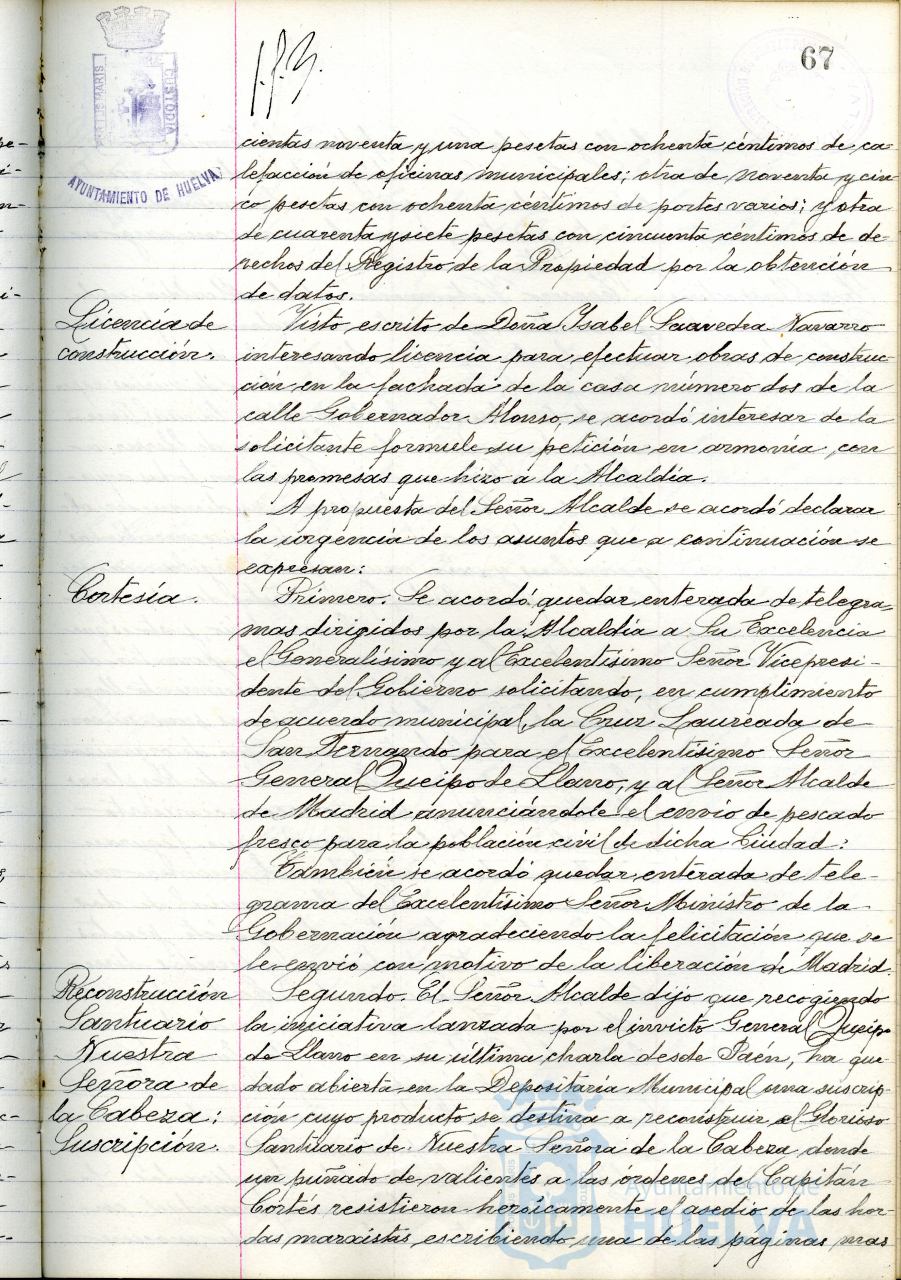 67
PORTUS MARIS
CUSTODIA
AYUNTAMIENTO DE HUELVA
cientas noventa y una pesetas con ochenta céntimos de ca-
lefacción de oficinas municipales; otra de noventa y cin-
co pesetas con ochenta céntimos de portes varios; y otra
de cuarenta y siete pesetas con cincuenta céntimos de de-
rechos del Registro de la Propiedad por la obtención
de datos.
Licencia de
construcción.
Visto escrito de Doña Ysabel Saavedra Navarro
interesando licencia para efectuar obras de construc-
ción en la fachada de la casa número dos de la
calle Gobernador Alonso, se acordó interesar de la
solicitante formule su petición en armonía con
las promesas que hizo a la Alcaldía.
A propuesta del Señor Alcalde se acordó declarar
la urgencia de los asuntos que a continuación se
expresan:
Cortesía.
Primero. Se acordó quedar enterada de telegra-
mas dirigidos por la Alcaldía a Su Excelencia
el Generalísimo y al Excelentísimo Señor Vicepresi-
dente del Gobierno solicitando, en cumplimiento
de acuerdo municipal, la Cruz Laureada de
San Fernando para el Excelentísimo Señor
General Queipo de Llano, y al Señor Alcalde
de Madrid anunciándole el envío de pescado
fresco para la población civil de dicha Ciudad:
También se acordó quedar enterada de tele-
grama del Excelentísimo Señor Ministro de la
Gobernación agradeciendo la felicitación que se
le envió con motivo de la liberación de Madrid.
Reconstrucción
Santuario
Nuestra
Señora de
la Cabeza:
Suscripción.
Segundo. El Señor Alcalde dijo que recogiendo
la iniciativa lanzada por el invicto General Queipo
de Llano en su última charla desde Jaén, ha que-
dado abierta en la Depositaría Municipal una suscrip-
ción cuyo producto se destina a reconstruir el Glorioso
Santuario de Nuestra Señora de la Cabeza, donde
un puñado de valientes a las órdenes de Capitán
Cortés resistieron heróicamente el asedio de las hor-
das marxistas, escribiendo una de las páginas mas
Ayuntamiento de
HUELVA